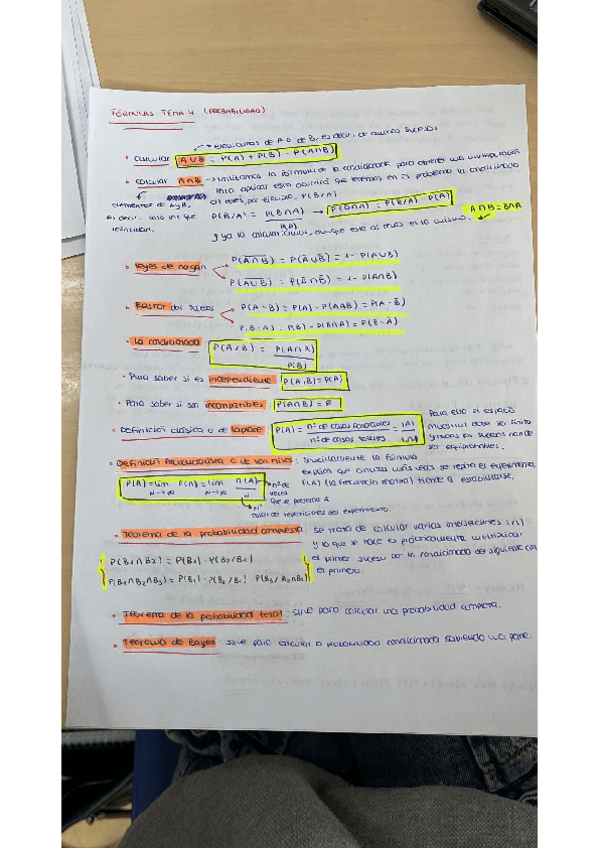 FÓRMULAS TEMA 4 (PROBABILIDAD)
elementos de A o de B, es decir, de algunos sucesos
• Calcular A∪B = P(A) + P(B) - P(A∩B)
• Calcular A∩B → utilizamos la fórmula de la condicionada para obtener una multiplicación
elementos de A y B, es decir,
para aplicar esto ocurrirá que tenemos en el problema la condicionada
al revés, por ejemplo, P(B/A)
P(B/A) = P(B∩A) / P(A) → P(B∩A) = P(B/A) · P(A)
y ya lo calculamos, aunque esté al revés es lo mismo. A∩B = B∩A
• Leyes de morgan
P(A̅∩̅B̅) = P(A̅∪B̅) = 1 - P(A∩B)
• Restar dos sucesos
P(A-B) = P(A) - P(A∩B) = P(A-B)
P(B-A) = P(B) - P(B∩A) = P(B-A)
• La condicionada P(A/B) = P(A∩B) / P(B)
• Para saber si es independiente P(A/B) = P(A)
• Para saber si son incompatibles P(A∩B) = Ø
• Definición clásica o de Laplace P(A) = nº de casos favorables / nº de casos totales
Para ello el espacio
muestral debe ser finito
y todos los sucesos han de
ser equiprobables.
• Definición frecuencialista o de von mises: sencillamente la fórmula
explica que cuantas más veces se repita el experimento,
P(A) (la frecuencia relativa) tiende a estabilizarse.
P(A) = lim P(n) = lim n(A) / N
N→∞ N→∞
nº de
veces
que se presenta A
total de repeticiones del experimento.
• Teorema de la probabilidad compuesta: se trata de calcular varias intersecciones (∩)
y lo que se hace es prácticamente multiplicar
el primer suceso por la condicionada del siguiente con
el primero.
P(B₁∩B₂) = P(B₁) · P(B₂/B₁)
P(B₁∩B₂∩B₃) = P(B₁) · P(B₂/B₁) · P(B₃/B₂∩B₁)
• Teorema de la probabilidad total: sirve para calcular una probabilidad completa.
• Teorema de Bayes: sirve para calcular la probabilidad condicionada sabiendo una parte.